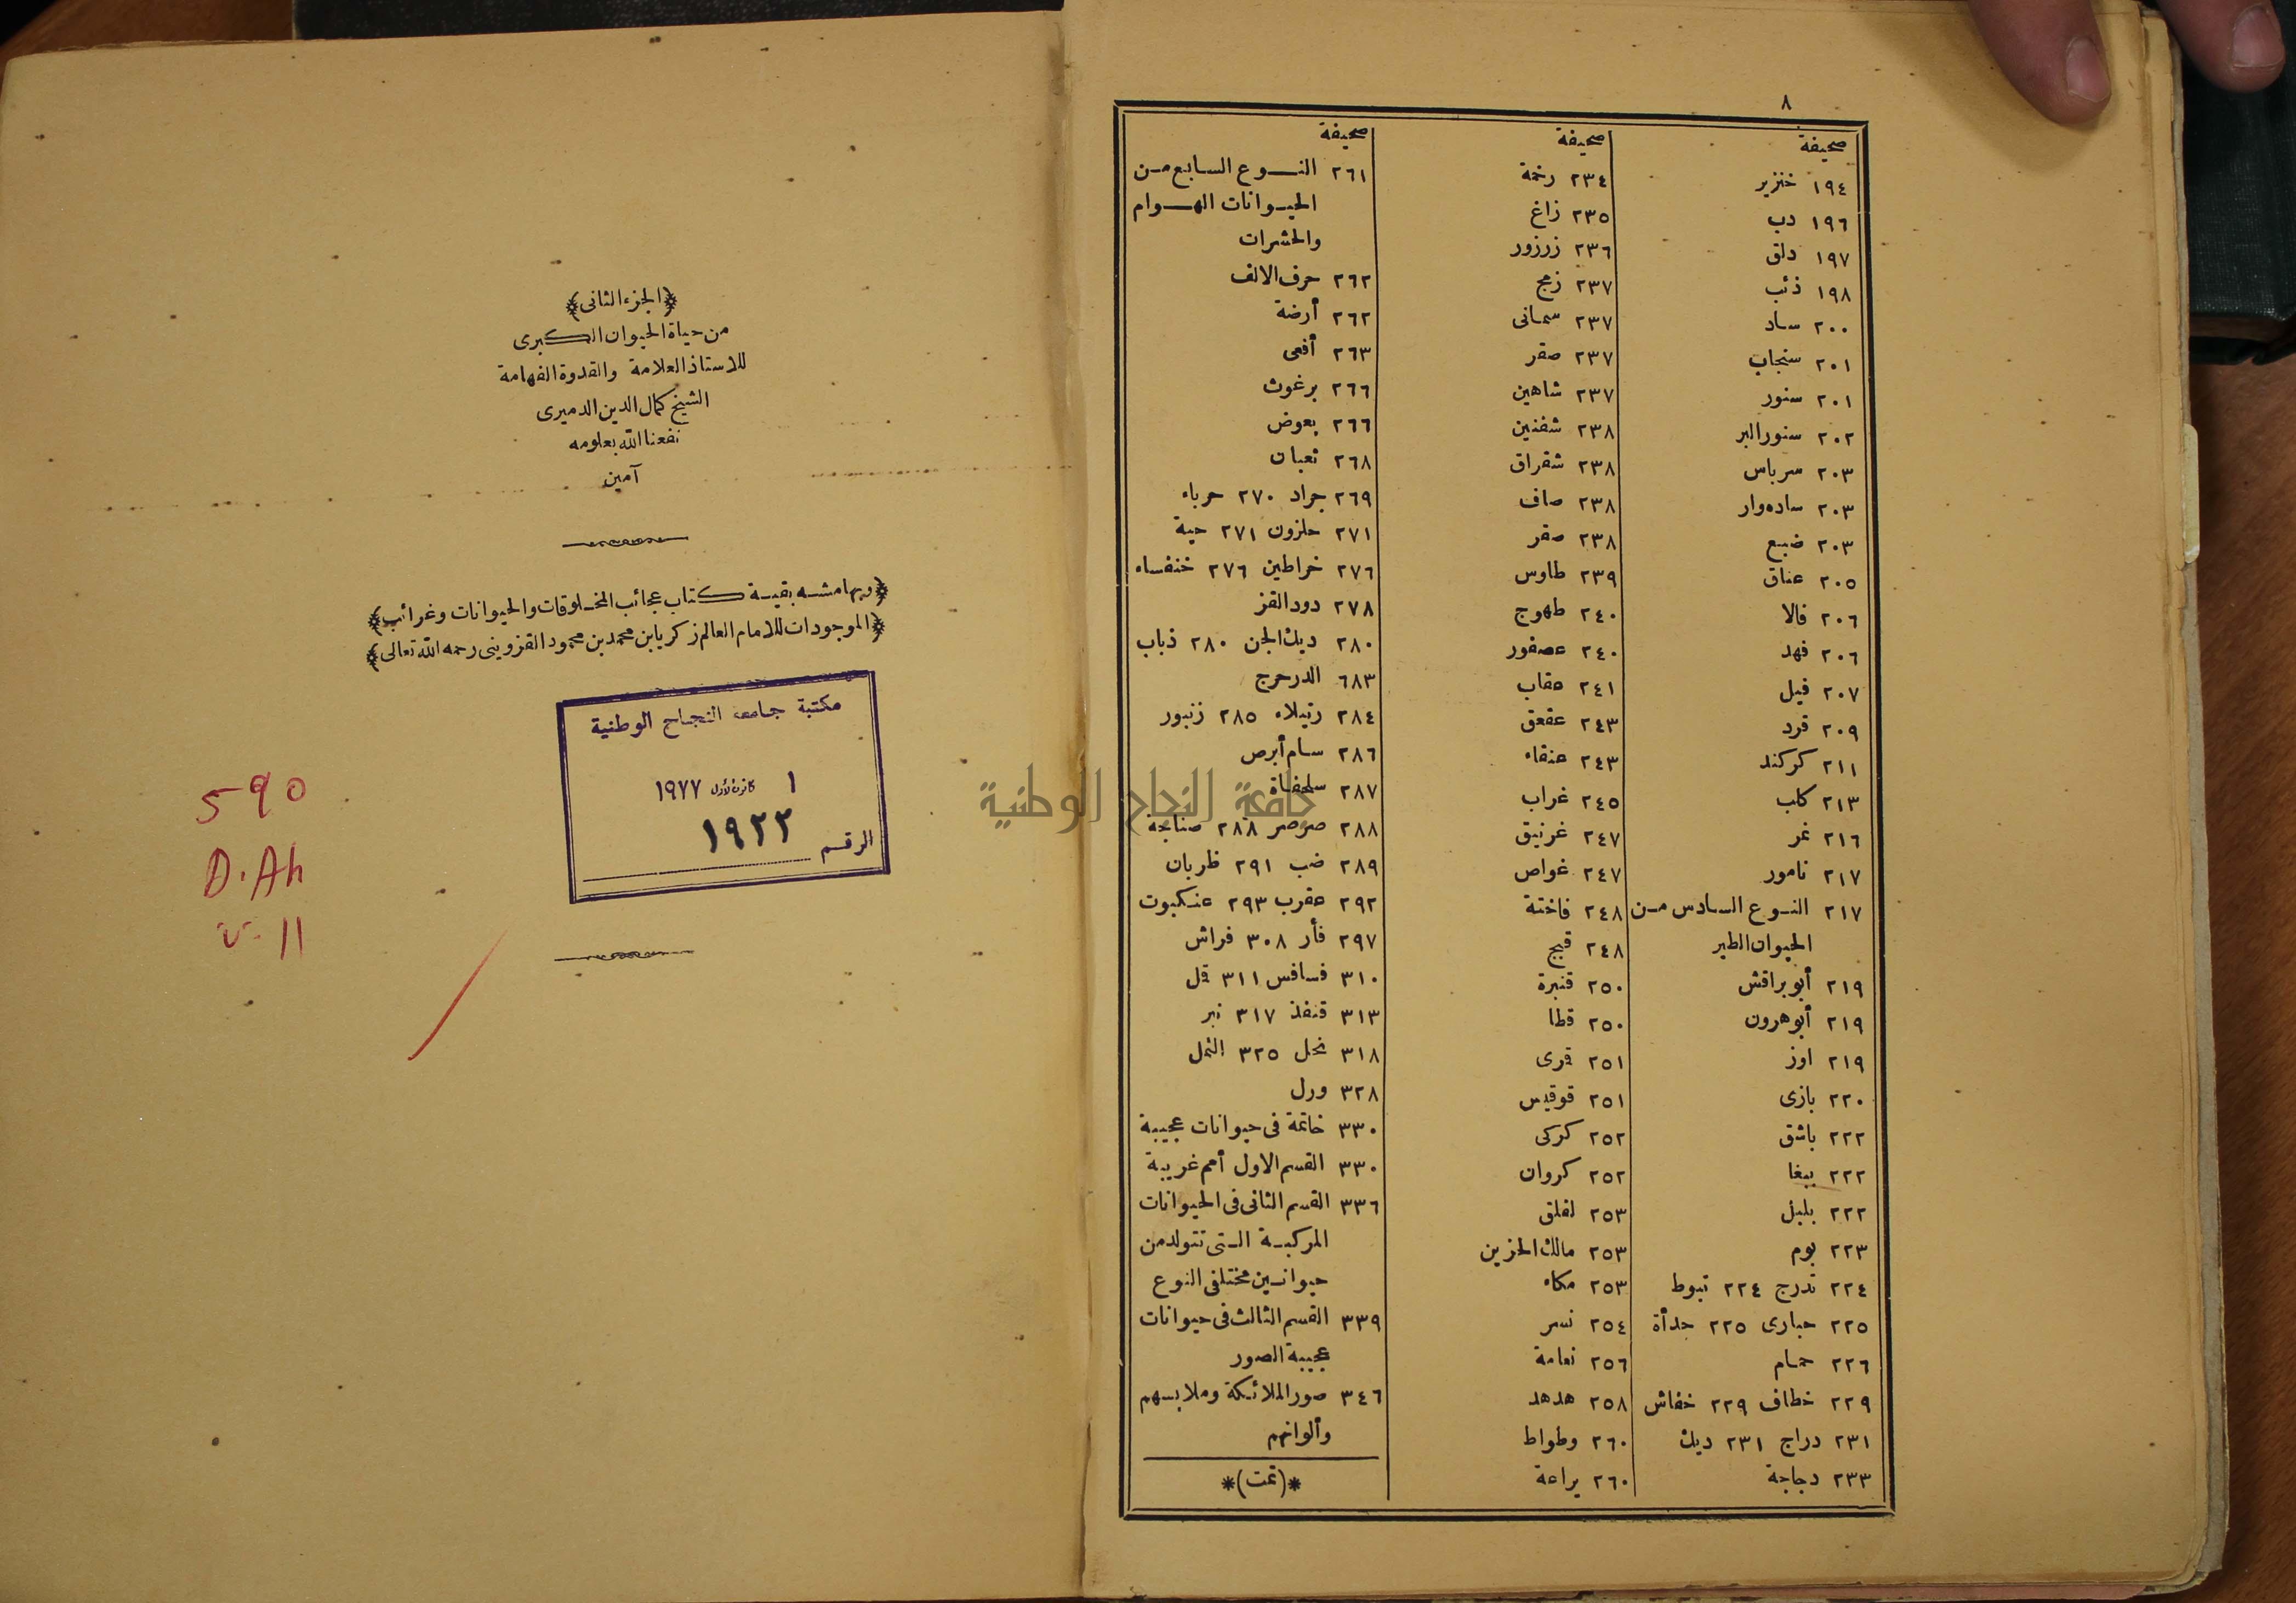 ٨
صحيفة
١٩٤ خنزير
١٩٦ دب
١٩٧ دلق
١٩٨ ذئب
٢٠٠ سناد
٢٠١ سنجاب
٢٠١ سنور
٢٠٢ سنور البر
٢٠٣ سرباس
٢٠٣ ساده وار
٢٠٣ ضبع
٢٠٥ عناق
٢٠٦ فالا
٢٠٦ فهد
٢٠٧ فيل
٢٠٩ قرد
٢١١ كركند
٢١٣ كلب
٢١٦ نمر
٢١٧ نامور
٢١٧ النوع السادس من
الحيوان الطير
٢١٩ أبو براقش
٢١٩ أبو هرون
٢١٩ اوز
٢٢٠ بازى
٢٢٢ باشق
٢٢٢ ببغا
٢٢٢ بلبل
٢٢٣ بوم
٢٢٤ تدرج ٢٢٤ تبوط
٢٢٥ حبارى ٢٢٥ حدأة
٢٢٦ حمام
٢٢٩ خطاف ٢٢٩ خفاش
٢٣١ دراج ٢٣١ ديك
٢٣٣ دجاجة
صحيفة
٢٣٤ رخمة
٢٣٥ زاغ
٢٣٦ زرزور
٢٣٧ زمج
٢٣٧ سمانى
٢٣٧ صقر
٢٣٧ شاهين
٢٣٨ شفنين
٢٣٨ شقراق
٢٣٨ صاف
٢٣٨ صقر
٢٣٩ طاوس
٢٤٠ طهوج
٢٤٠ عصفور
٢٤١ عقاب
٢٤٣ عقعق
٢٤٣ عنقاء
٢٤٥ غراب
٢٤٧ غرنيق
٢٤٧ غواص
٢٤٨ فاختة
٢٤٨ قبج
٢٥٠ قنبرة
٢٥٠ قطا
٢٥١ قمرى
٢٥١ قوقيس
٢٥٢ كركى
٢٥٢ كروان
٢٥٣ لقلق
٢٥٣ مالك الحزين
٢٥٣ مكاء
٢٥٤ نسر
٢٥٦ نعامة
٢٥٨ هدهد
٢٦٠ وطواط
٢٦٠ يراعة
صحيفة
٢٦١ النوع السابع من
الحيوانات الهوام
والحشرات
٢٦٢ حرف الالف
٢٦٢ أرضة
٢٦٣ أفعى
٢٦٦ برغوث
٢٦٦ بعوض
٢٦٨ ثعبان
٢٦٩ جراد ٢٧٠ حرباء
٢٧١ حلزون ٢٧١ حية
٢٧٦ خراطين ٢٧٦ خنفساء
٢٧٨ دود القز
٢٨٠ ديك الجن ٢٨٠ ذباب
٦٨٣ الدرحرج
٢٨٤ رتيلاء ٢٨٥ زنبور
٢٨٦ سام أبرص
٢٨٧ سلحفاة
٢٨٨ صرصر ٢٨٨ صناجة
٢٨٩ ضب ٢٩١ ظربان
٢٩٢ عقرب ٢٩٣ عنكبوت
٢٩٧ فأر ٣٠٨ فراش
٣١٠ فسافس ٣١١ قمل
٣١٣ قنفذ ٣١٧ نبر
٣١٨ نحل ٣٢٥ النمل
٣٢٨ ورل
٣٣٠ خاتمة فى حيوانات عجيبة
٣٣٠ القسم الاول أمم غريبة
٣٣٦ القسم الثانى فى الحيوانات
المركبة التى تتولد من
حيوانين مختلفى النوع
٣٣٩ القسم الثالث فى حيوانات
عجيبة الصور
٣٤٦ صور الملائكة وملابسهم
وألوانهم
*(تمت)*
﴿الجزء الثانى﴾
من حياة الحيوان الكبرى
للاستاذ العلامة والقدوة الفهامة
الشيخ كمال الدين الدميرى
نفعنا الله بعلومه
آمين
﴿وبهامشه بقية كتاب عجائب المخلوقات والحيوانات وغرائب﴾
﴿الموجودات للامام العالم زكريا بن محمد بن محمود القزوينى رحمه الله تعالى﴾
مكتبة جامعة النجاح الوطنية
١ كانون الأول ١٩٧٧
الرقم ١٩٢٢
590
D.Ah
v-11
جامعة النجاح الوطنية